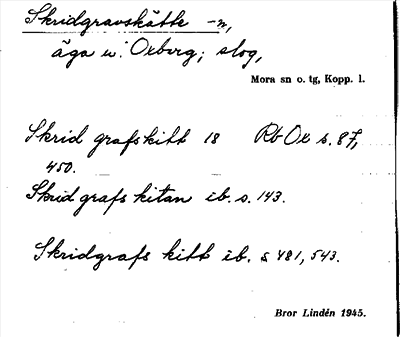 Skridgravskätte -n,
äga u. Oxberg; slog,
Mora sn o. tg, Kopp. l.
Skrid grafskitt 18 Rb Ox s. 87,
450.
Skrid grafs kitan ib. s. 143.
Skridgrafs kitt ib. s 481, 543.
Bror Lindén 1945.